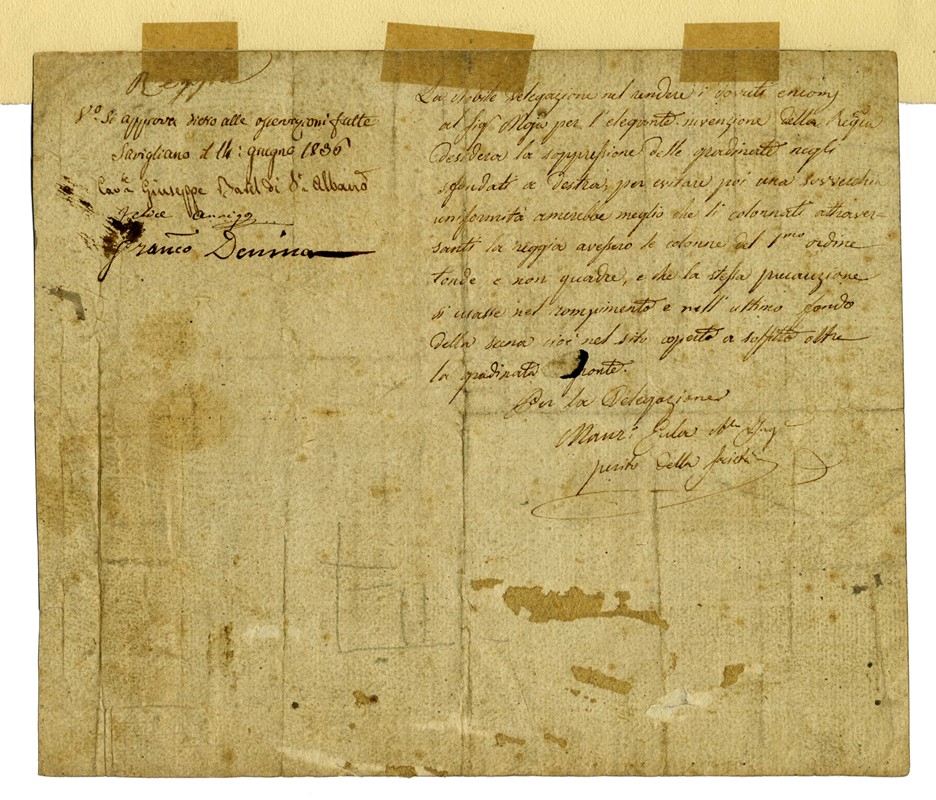 Reggia
V.º Si approva dietro alle osservazioni fatte
Savigliano il 14: giugno 1836
Cav.re Giuseppe Bard di S. Albano
Felice
Franco Denina
La nobile Delegazione nel rendere i dovuti encomj
al Sig.r Moja per l'elegante invenzione della Reggia
desidera la soppressione delle gradinate negli
sfondati a destra; per evitare poi una soverchia
uniformità amerebbe meglio che li colonnati attraver-
santi la reggia avessero le colonne del 1.mo ordine
tonde e non quadre, e che la stessa precauzione
si usasse nel rompimento e nell'ultimo fondo
della scena cioè nel sito coperto a soffitto oltre
la gradinata fronte.
Per la Delegazione
Mauri
perito della Società